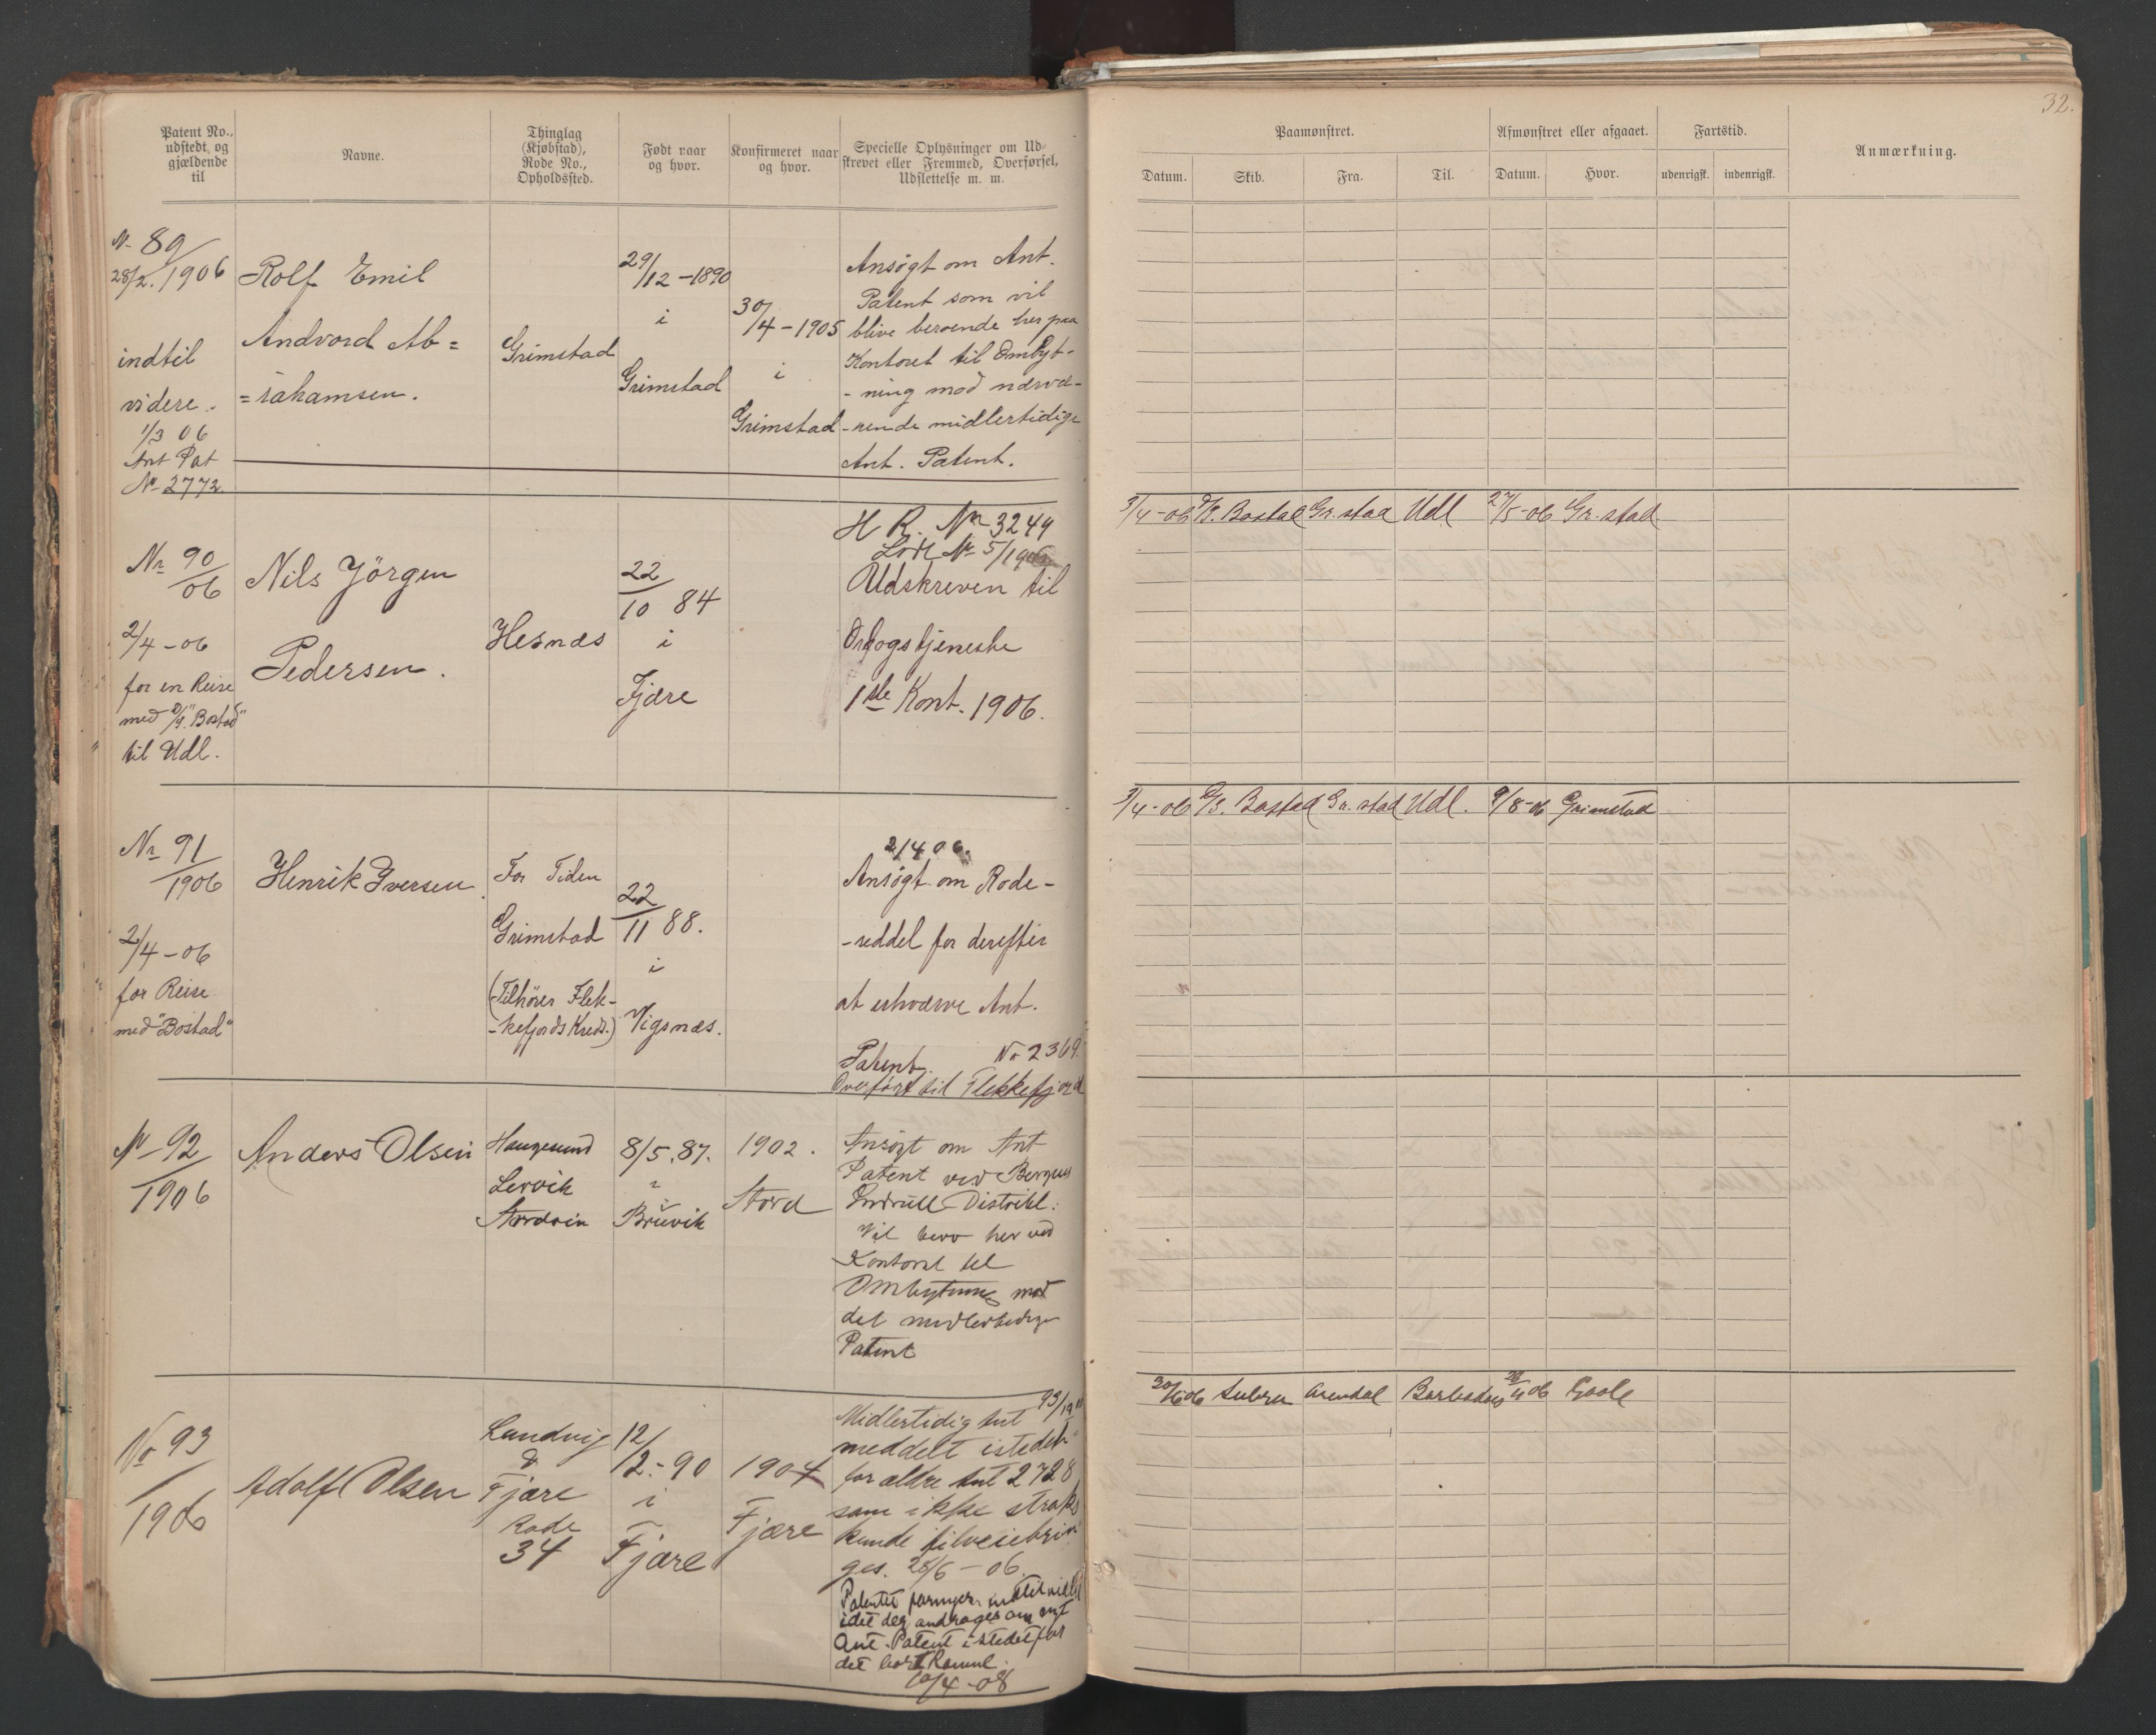 32.
Patent No.,
udstedt og
gjældende
til
Navne.
Thinglag
(Kjøbstad),
Rode No.,
Opholdssted.
Født naar
og hvor.
Konfirmeret naar
og hvor.
Specielle Oplysninger om Ud-
skrevet eller Fremmed, Overførsel,
Udslettelse m. m.
Paamønstret.
Datum.
Skib.
Fra.
Til.
Afmønstret eller afgaaet.
Datum.
Hvor.
Fartstid.
udenrigsk.
indenrigsk.
Anmærkning.
N. 89/
28/2. 1906
indtil
videre.
1/3 06
Ant Pat
No 2772.
Rolf Emil
Andvord Ab=
=rahamsen.
Grimstad
29/12 - 1890
i
Grimstad
30/4 - 1905
i
Grimstad
Ansögt om Ant.
Patent som vil
blive beroende her paa
Kontoret til Ombyt-
- ning mod nærvæ-
- rende midlertidige
Ant. Patent.
Nr 90/06
2/4 - 06
for en Reise
med D/S. "Bostad"
til Udl.
Nils Jörgen
Pedersen.
Hesnæs
22/10 84
i
Fjære
H R. Nr 3249
Lodt Nr 5/1906
Udskreven til
Orlogstjeneste
1ste Kont. 1906.
3/4-06 D/S. Bostad Gr.stad Udl 27/5-06 Gr.stad
Nr 91/1906
2/4 - 06
for Reise
med "Bostad"
Henrik Iversen.
For Tiden
Grimstad
(Tilhörer Flek-
-kefjords Kreds.)
22/11 88.
i
Vigsnæs.
2/4 06.
Ansögt om Rode-
-seddel for derefter
at erhværve Ant.
Patent. No 2369.
Overført til Flekkefjord
3/4-06 D/S. Bostad Gr.stad Udl. 9/8-06 Grimstad
No 92/1906
Anders Olsen
Haugesund
Lervik
8/5.87.
i
Bruvik
1902.
Stord
Ansögt om Ant
Patent ved Bergens
Indrull-Distrikt.
Vil bero her ved
Kontoret til
Ombytning mod
det midlertidige
Patent
No 93/1906
Adolf Olsen
Landvig
&
Fjære
Rode
34
12/12.-90
i
Fjære
1904
Fjære
Midlertidig Ant 93/19
meddelt istedet
for ældre Ant 2728
som ikke straks
kunde tilveiebrin
ges. 28/6 - 06.
idet der andrages om nyt
Ant. Patent istedetfor
det bortkomne.
10/4-08
30/6 06 Arendal Barbados 06 Goole